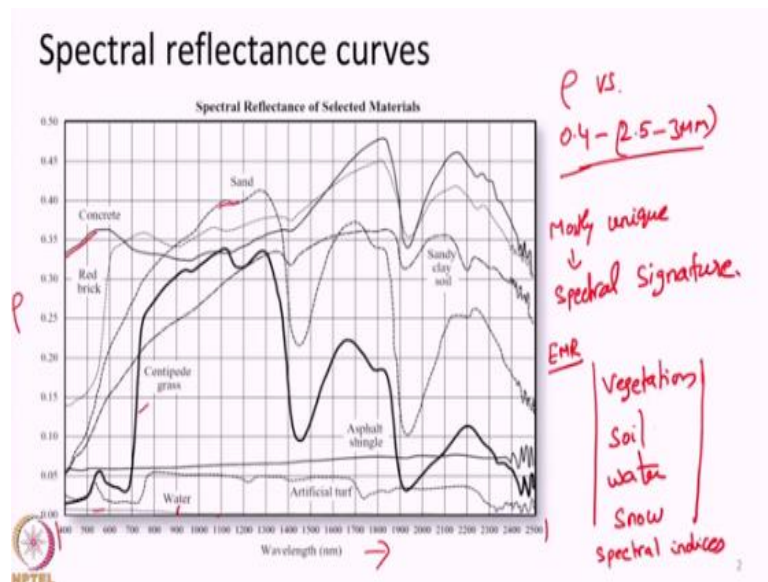 Spectral reflectance curves
Spectral Reflectance of Selected Materials
0.50
0.45
0.40
0.35
0.30
0.25
0.20
0.15
0.10
0.05
0.00
Concrete
Sand
Red
brick
Sandy
clay
soil
Centipede
grass
Asphalt
shingle
Water
Artificial turf
400 500 600 700 800 900 1000 1100 1200 1300 1400 1500 1600 1700 1800 1900 2000 2100 2200 2300 2400 2500
Wavelength (nm)
ρ
ρ vs.
0.4-(2.5-3μm)
Mostly unique
↓
Spectral Signature.
EMR
Vegetation
Soil
water
Snow
spectral indices
NPTEL
2